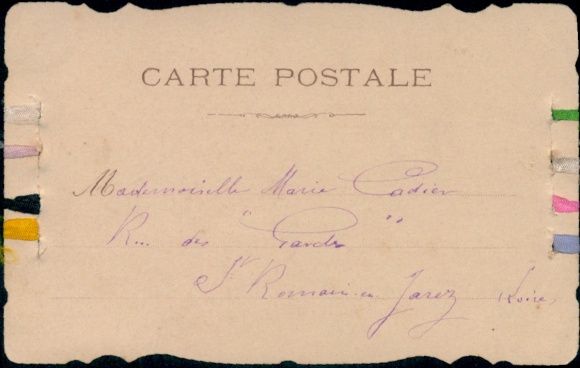 CARTE POSTALE
Mademoiselle Marie Cadier
R... des " "
St Romain-en Jarez (Loire)